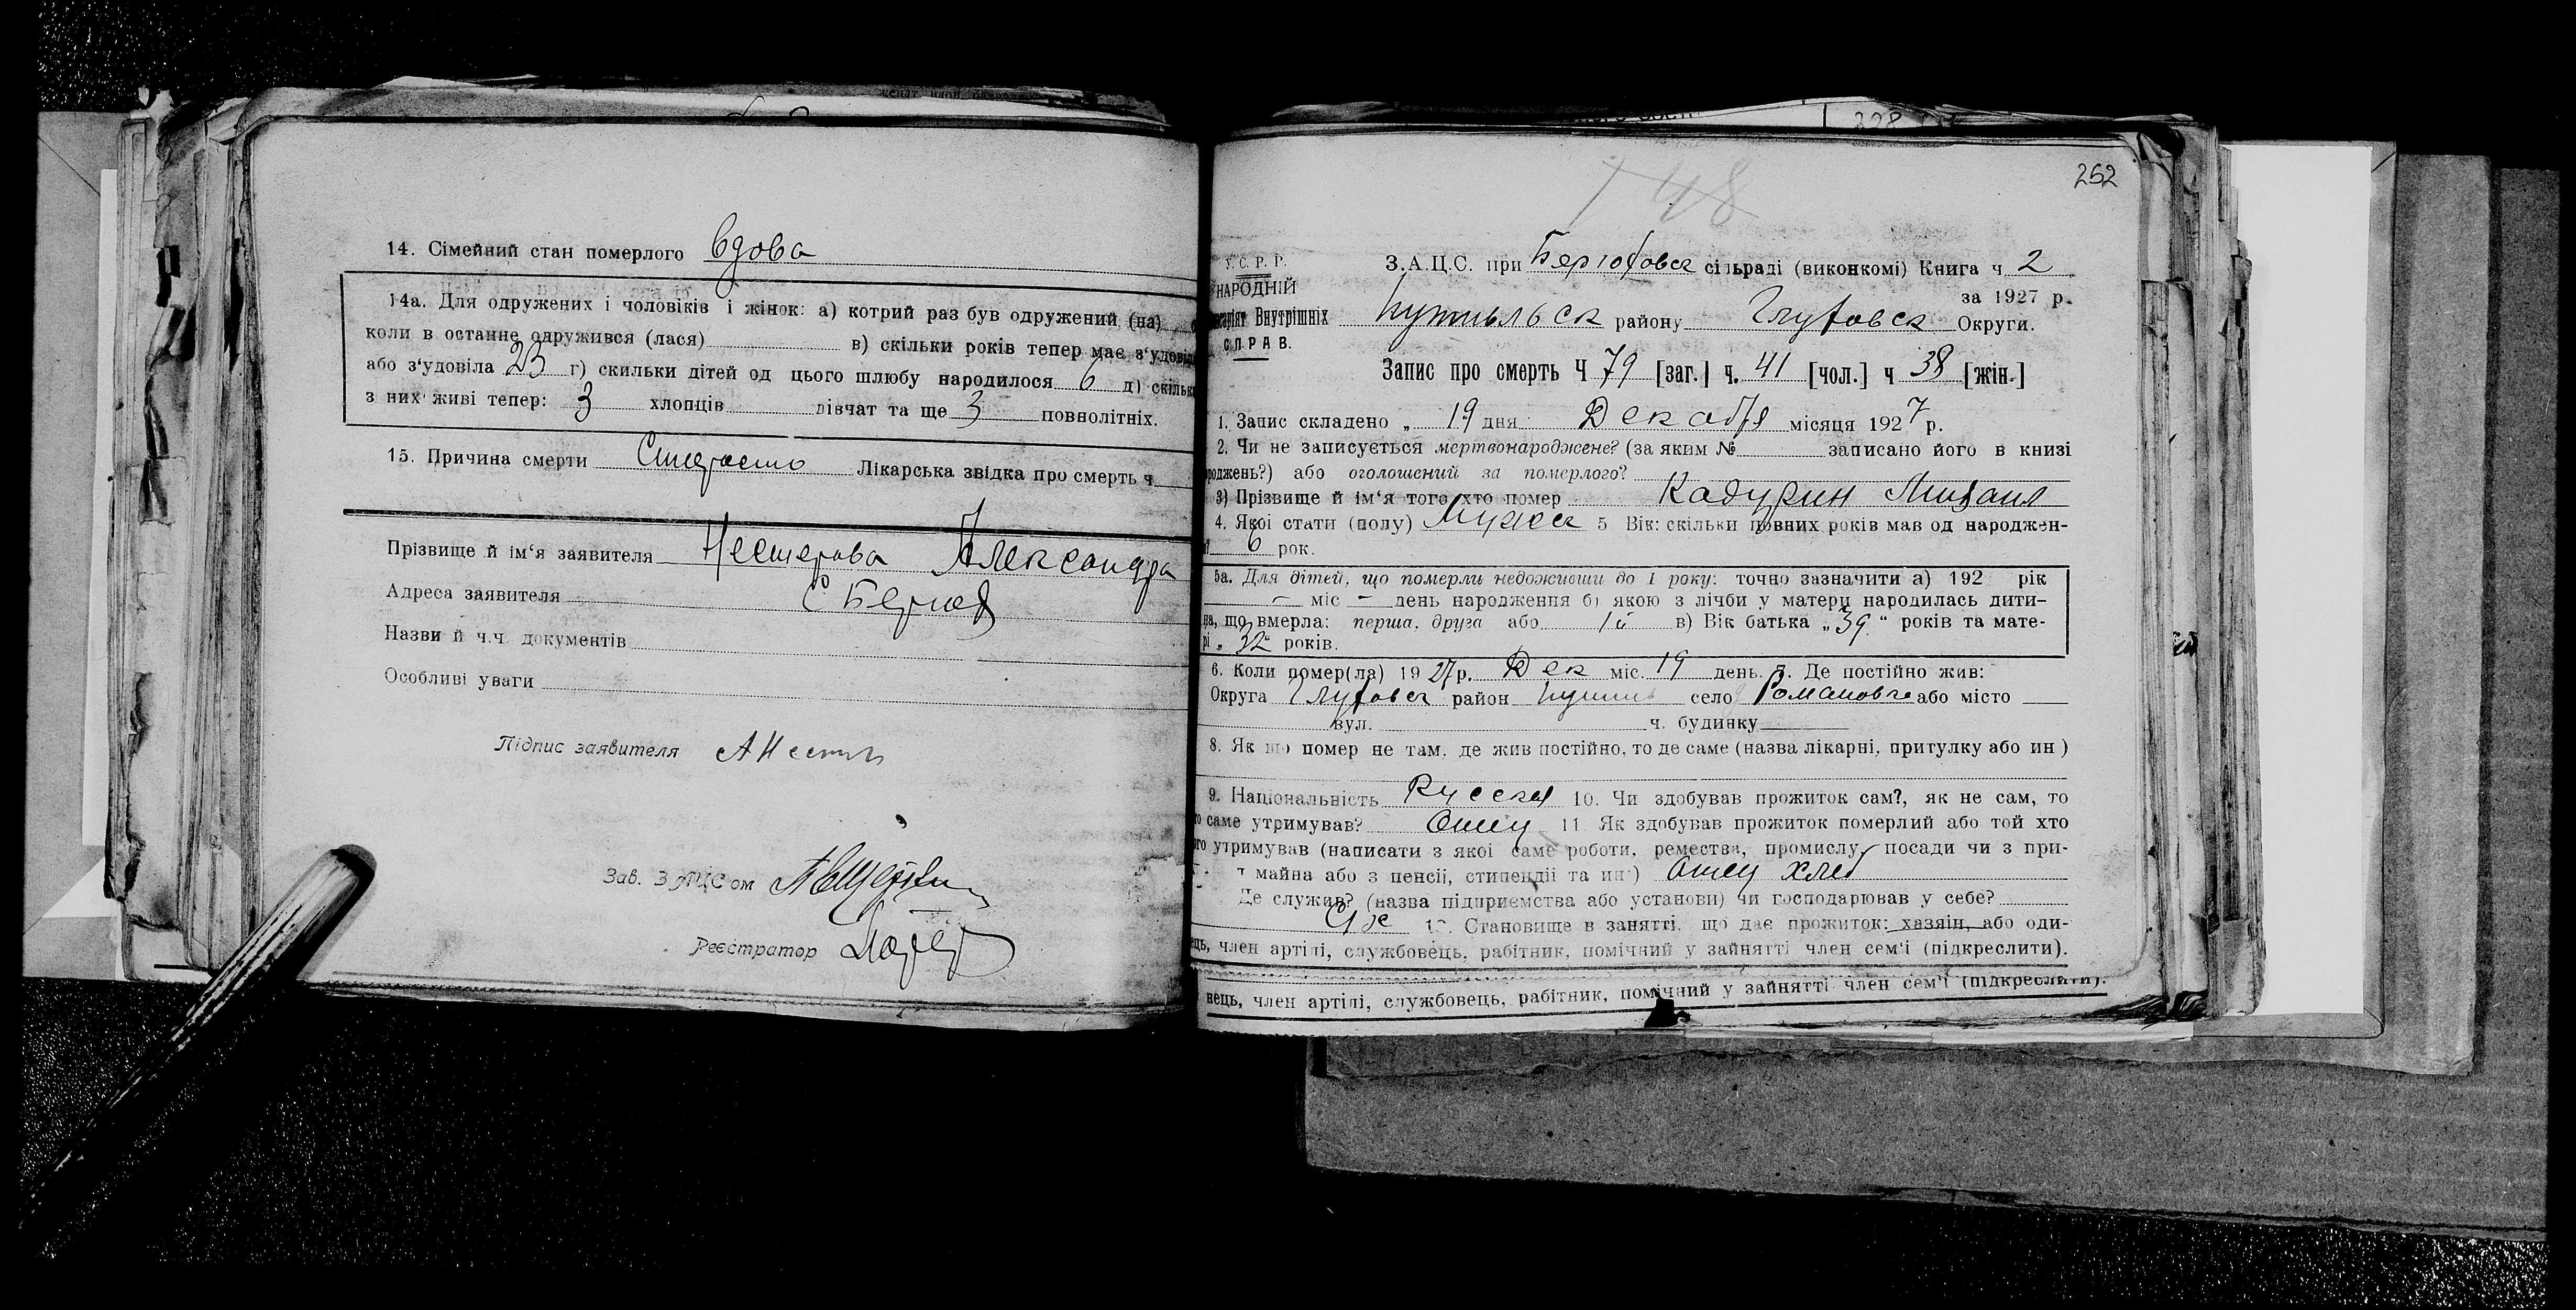 14. Сімейний стан померлого вдова
14а. Для одружених і чоловіків і жінок: а) котрий раз був одружений (на)
коли в останнє одружився (лася) в) скільки років тепер має з'удовів
або з'удовіла 23 г) скильки дітей од цього шлюбу народилося 6 д) скільк
з них живі тепер: 3 хлопців дівчат та ще 3 повнолітніх.
15. Причина смерти Старость Лікарська звідка про смерть ч.
Прізвище й ім'я заявителя Нестерова Александра
Адреса заявителя С
Назви й ч.ч. документів
Особливі уваги
Підпис заявителя
Зав. ЗАЦС'ом
Реєстратор
262
У. С. Р. Р.
НАРОДНІЙ
Внутрішніх
СПРАВ.
З.А.Ц.С. при сільраді (виконкомі) Книга ч 2
за 1927 р.
Путивльск району Глуховск Округи.
Запис про смерть Ч 79 [заг.] ч. 41 [чол.] ч 38 [жін.]
1. Запис складено „ 19 дня Декабря місяця 1927 р.
2. Чи не записується мертвонароджене? (за яким № записано його в книзі
роджень?) або оголошений за померлого?
3) Прізвище й ім'я того хто помер Кадурин Михаил
4. Якої стати (полу) Мужск 5 Вік: скільки повних років мав од народжен-
6 рок.
5а. Для дітей, що померли недоживши до 1 року: точно зазначити а) 192 рік
— міс — день народження б) якою з лічби у матери народилась дити-
на, що вмерла: перша, друга або в) Вік батька „39“ років та мате-
рі „32“ років.
6. Коли помер(ла) 1927 р. Дек міс. 19 день. 7. Де постійно жив:
Округа Глуховск район Путив село Романовка або місто
вул. ч. будинку
8. Як що помер не там, де жив постійно, то де саме (назва лікарні, притулку або ин)
9. Національність Русская 10. Чи здобував прожиток сам?, як не сам, то
то саме утримував? Отец 11 Як здобував прожиток померлий або той хто
його утримував (написати з якої саме роботи, ремества, промислу, посади чи з при-
майна або з пенсії, стипендії та ин.) Отец хлеб
Де служив? (назва підприємства або установи) чи господарював у себе?
Становище в занятті, що дає прожиток: хазяїн, або оди-
нець, член артілі, службовець, рабітник, помічний у зайнятті член сем'ї (підкреслити).
нець, член артілі, службовець, рабітник, помічний у зайнятті член сем'ї (підкреслити).